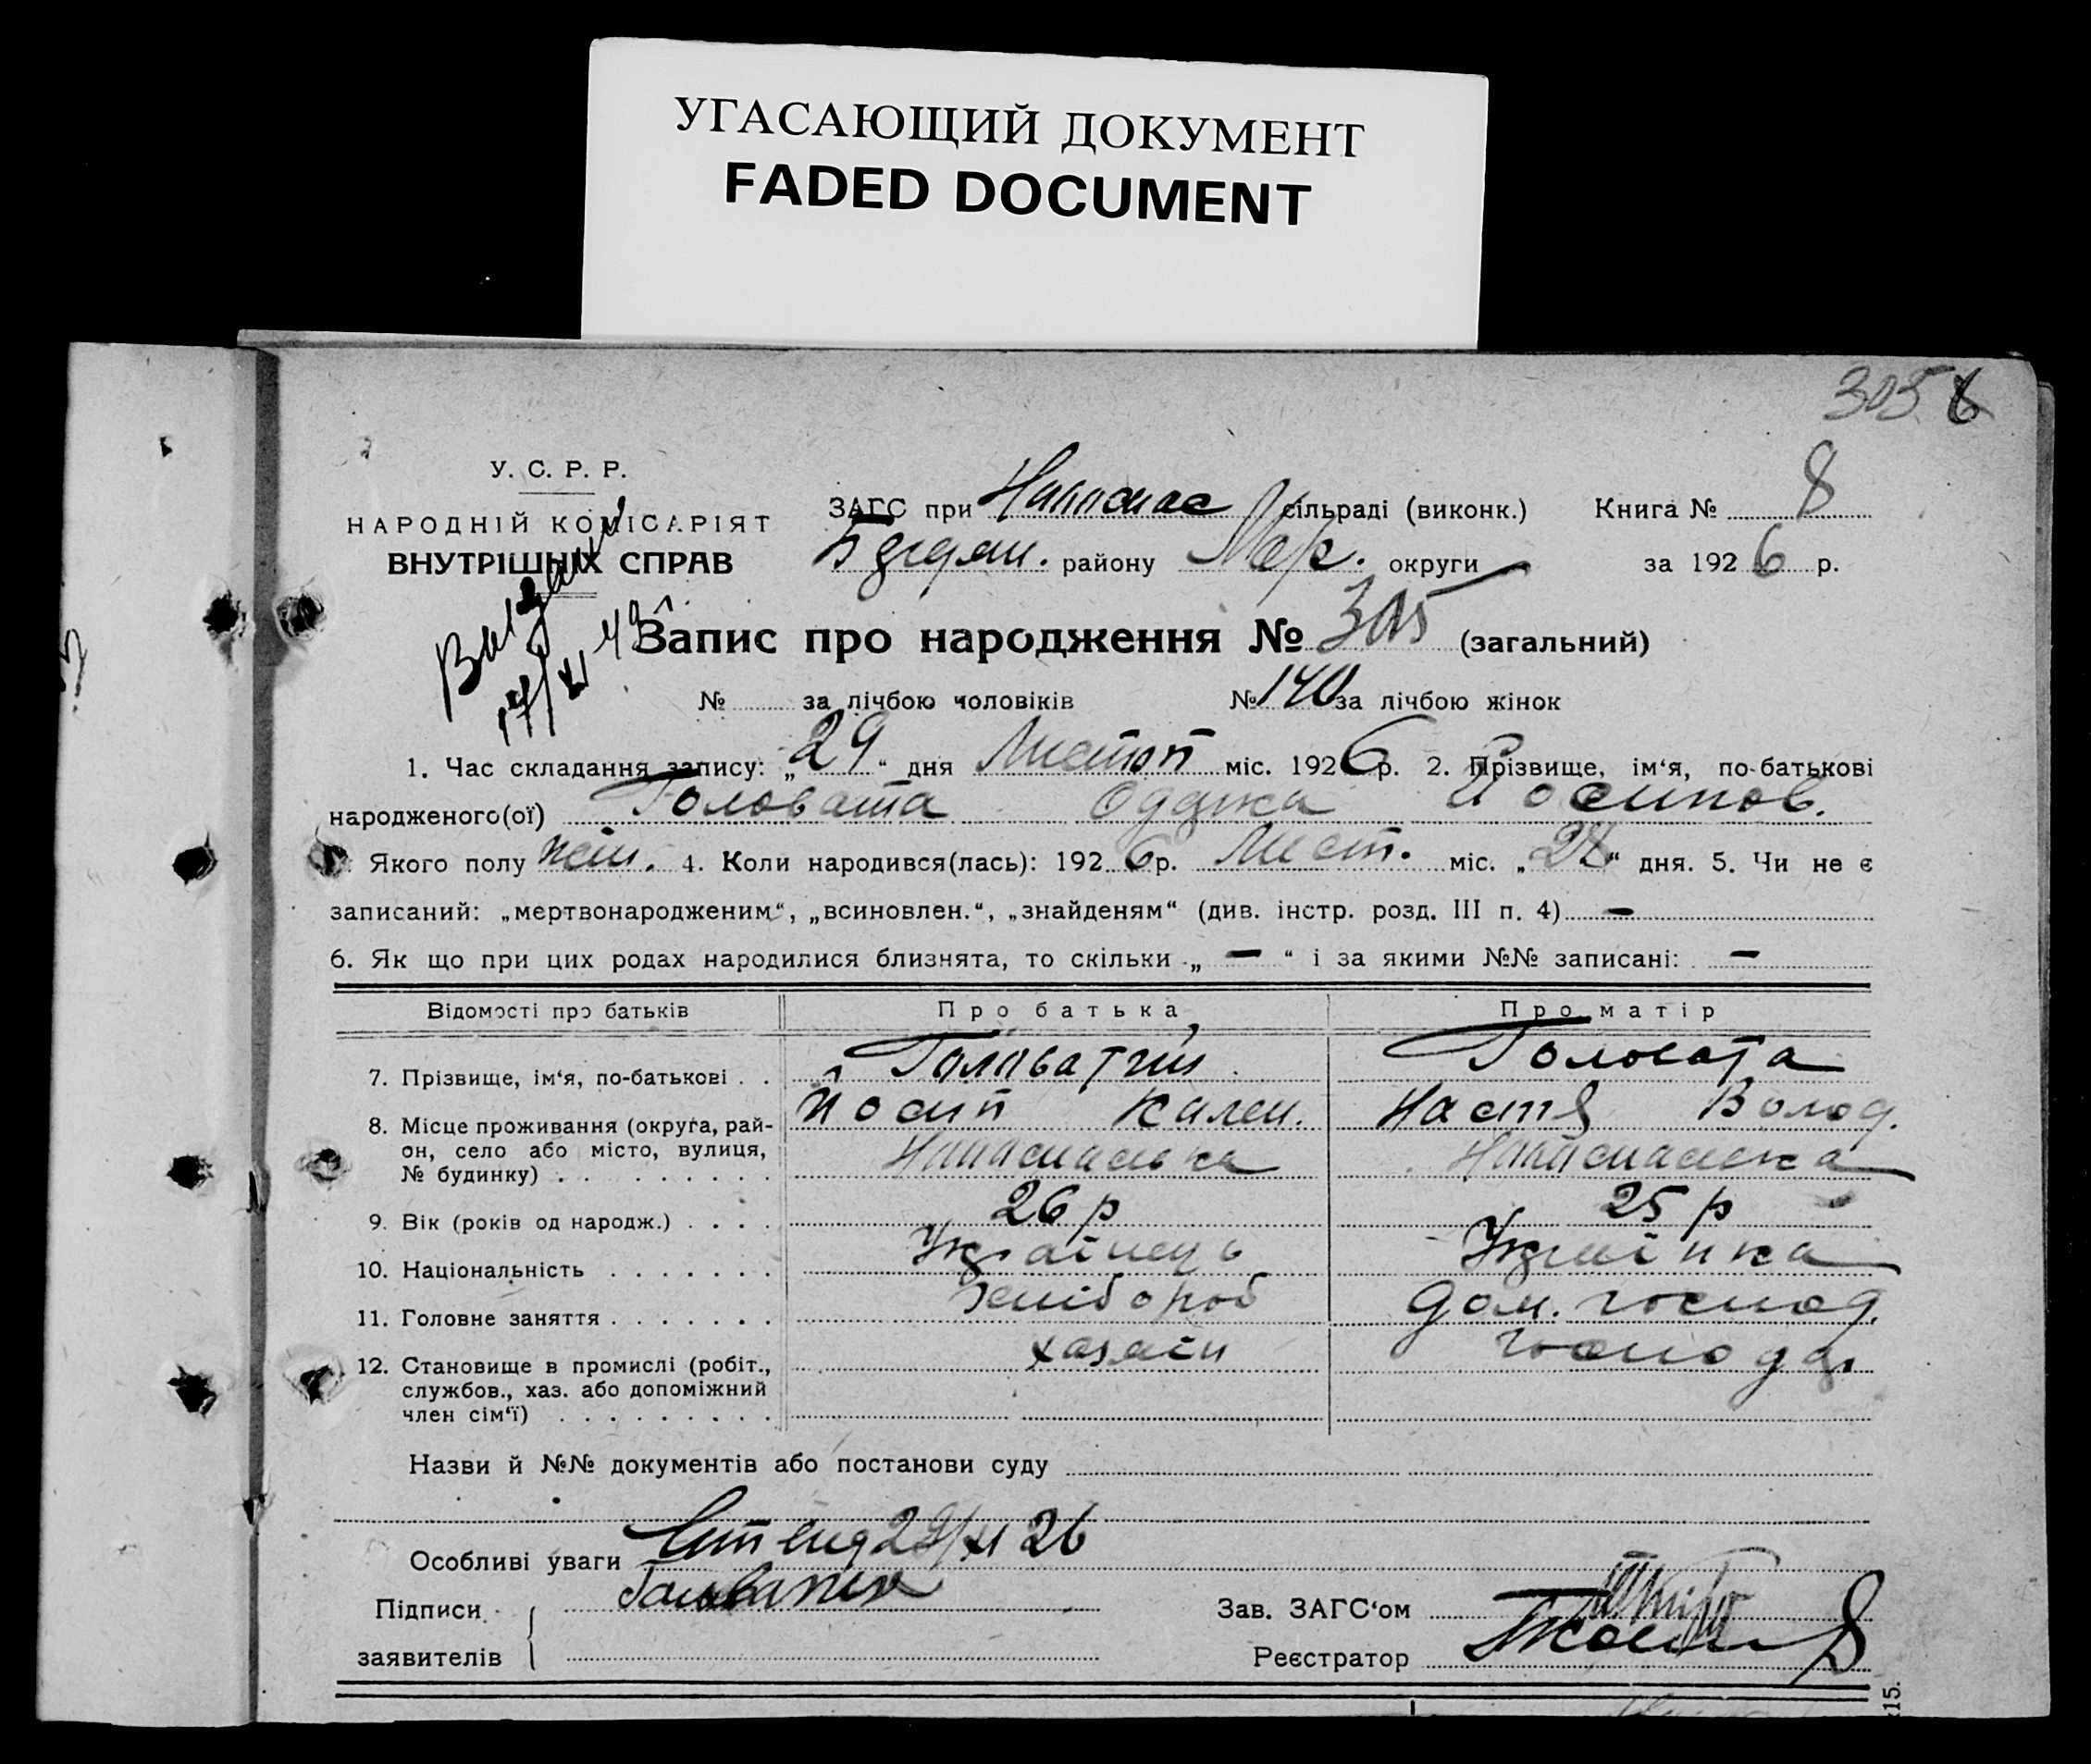 УГАСАЮЩИЙ ДОКУМЕНТ
FADED DOCUMENT
305 8
У. С. Р. Р.
НАРОДНІЙ КОМІСАРІЯТ
ВНУТРІШНІХ СПРАВ
ЗАГС при сільраді (виконк.) Книга № 8
району округи за 1926 р.
Запис про народження № 305 (загальний)
№ за лічбою чоловіків № 140 за лічбою жінок
1. Час складання запису: „29“ дня Листоп міс. 1926 р. 2. Прізвище, ім‘я, по-батькові
народженого(ої) Головата Одджа Йосипов.
Якого полу жін. 4. Коли народився(лась): 1926 р. Лист. міс. „28“ дня. 5. Чи не є
записаний: „мертвонародженим“, „всиновлен.“, „знайденям“ (див. інстр. розд. III п. 4) —
6. Як що при цих родах народилися близнята, то скільки „ — “ і за якими №№ записані: —
Відомості про батьків Про батька Про матір
7. Прізвище, ім‘я, по-батькові . . Головатий Головата
Йосип Калем. Настя Волод.
8. Місце проживання (округа, рай-
он, село або місто, вулиця,
№ будинку)
9. Вік (років од народж.) . . . . 26 р 25 р
10. Національність . . . . . . . Українець Українка
11. Головне заняття . . . . . . . Хлібороб дом. господ.
12. Становище в промислі (робіт., хазяїн господ.
службов., хаз. або допоміжний
член сім‘ї) . . . . . . . . .
Назви й №№ документів або постанови суду
Особливі уваги 29/XI 26
Підписи
заявителів
Зав. ЗАГС‘ом
Реєстратор